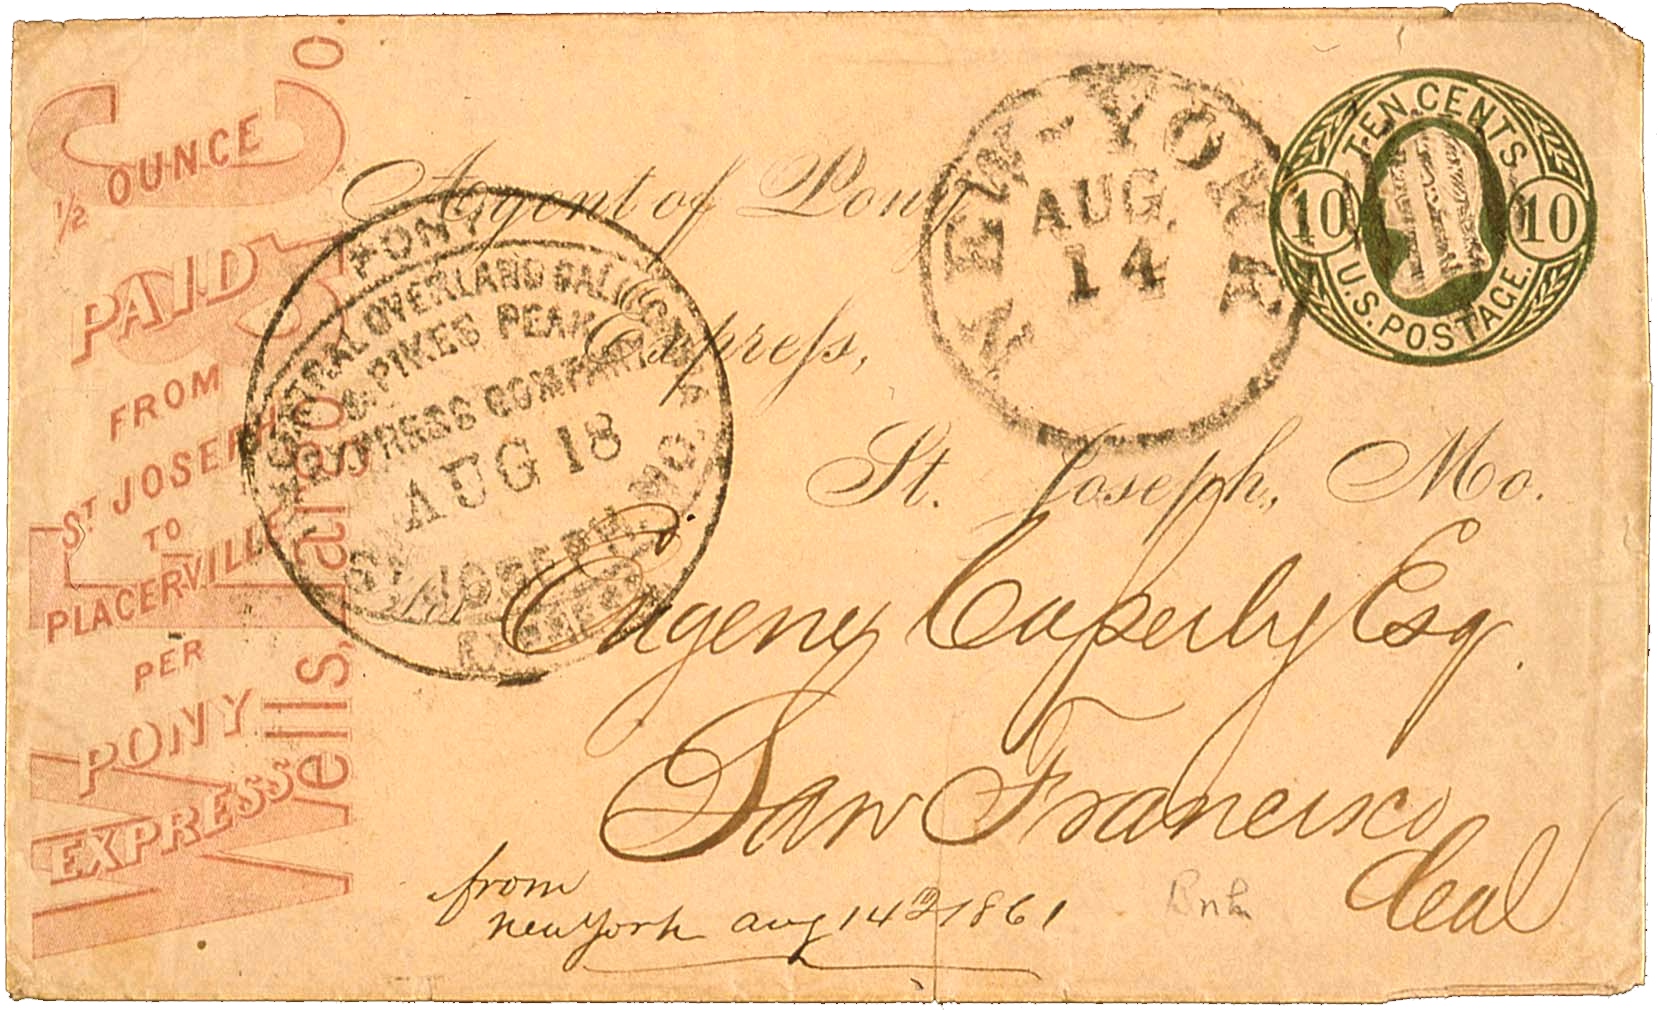 Wells, Fargo & Co.
½ OUNCE
PAID
FROM
ST JOSEPH
TO
PLACERVILLE
PER
PONY
EXPRESS
Agent of Pony
Express,
St. Joseph, Mo.
PONY
CENTRAL OVERLAND CALIFORNIA
& PIKES PEAK
EXPRESS COMPANY
AUG 18
ST. JOSEPH, MO.
NEW-YORK
AUG.
14
TEN CENTS.
10 10
U.S. POSTAGE.
for
Eugene Caperly Esq.
San Francisco
Cal
from
New York aug 14 1861